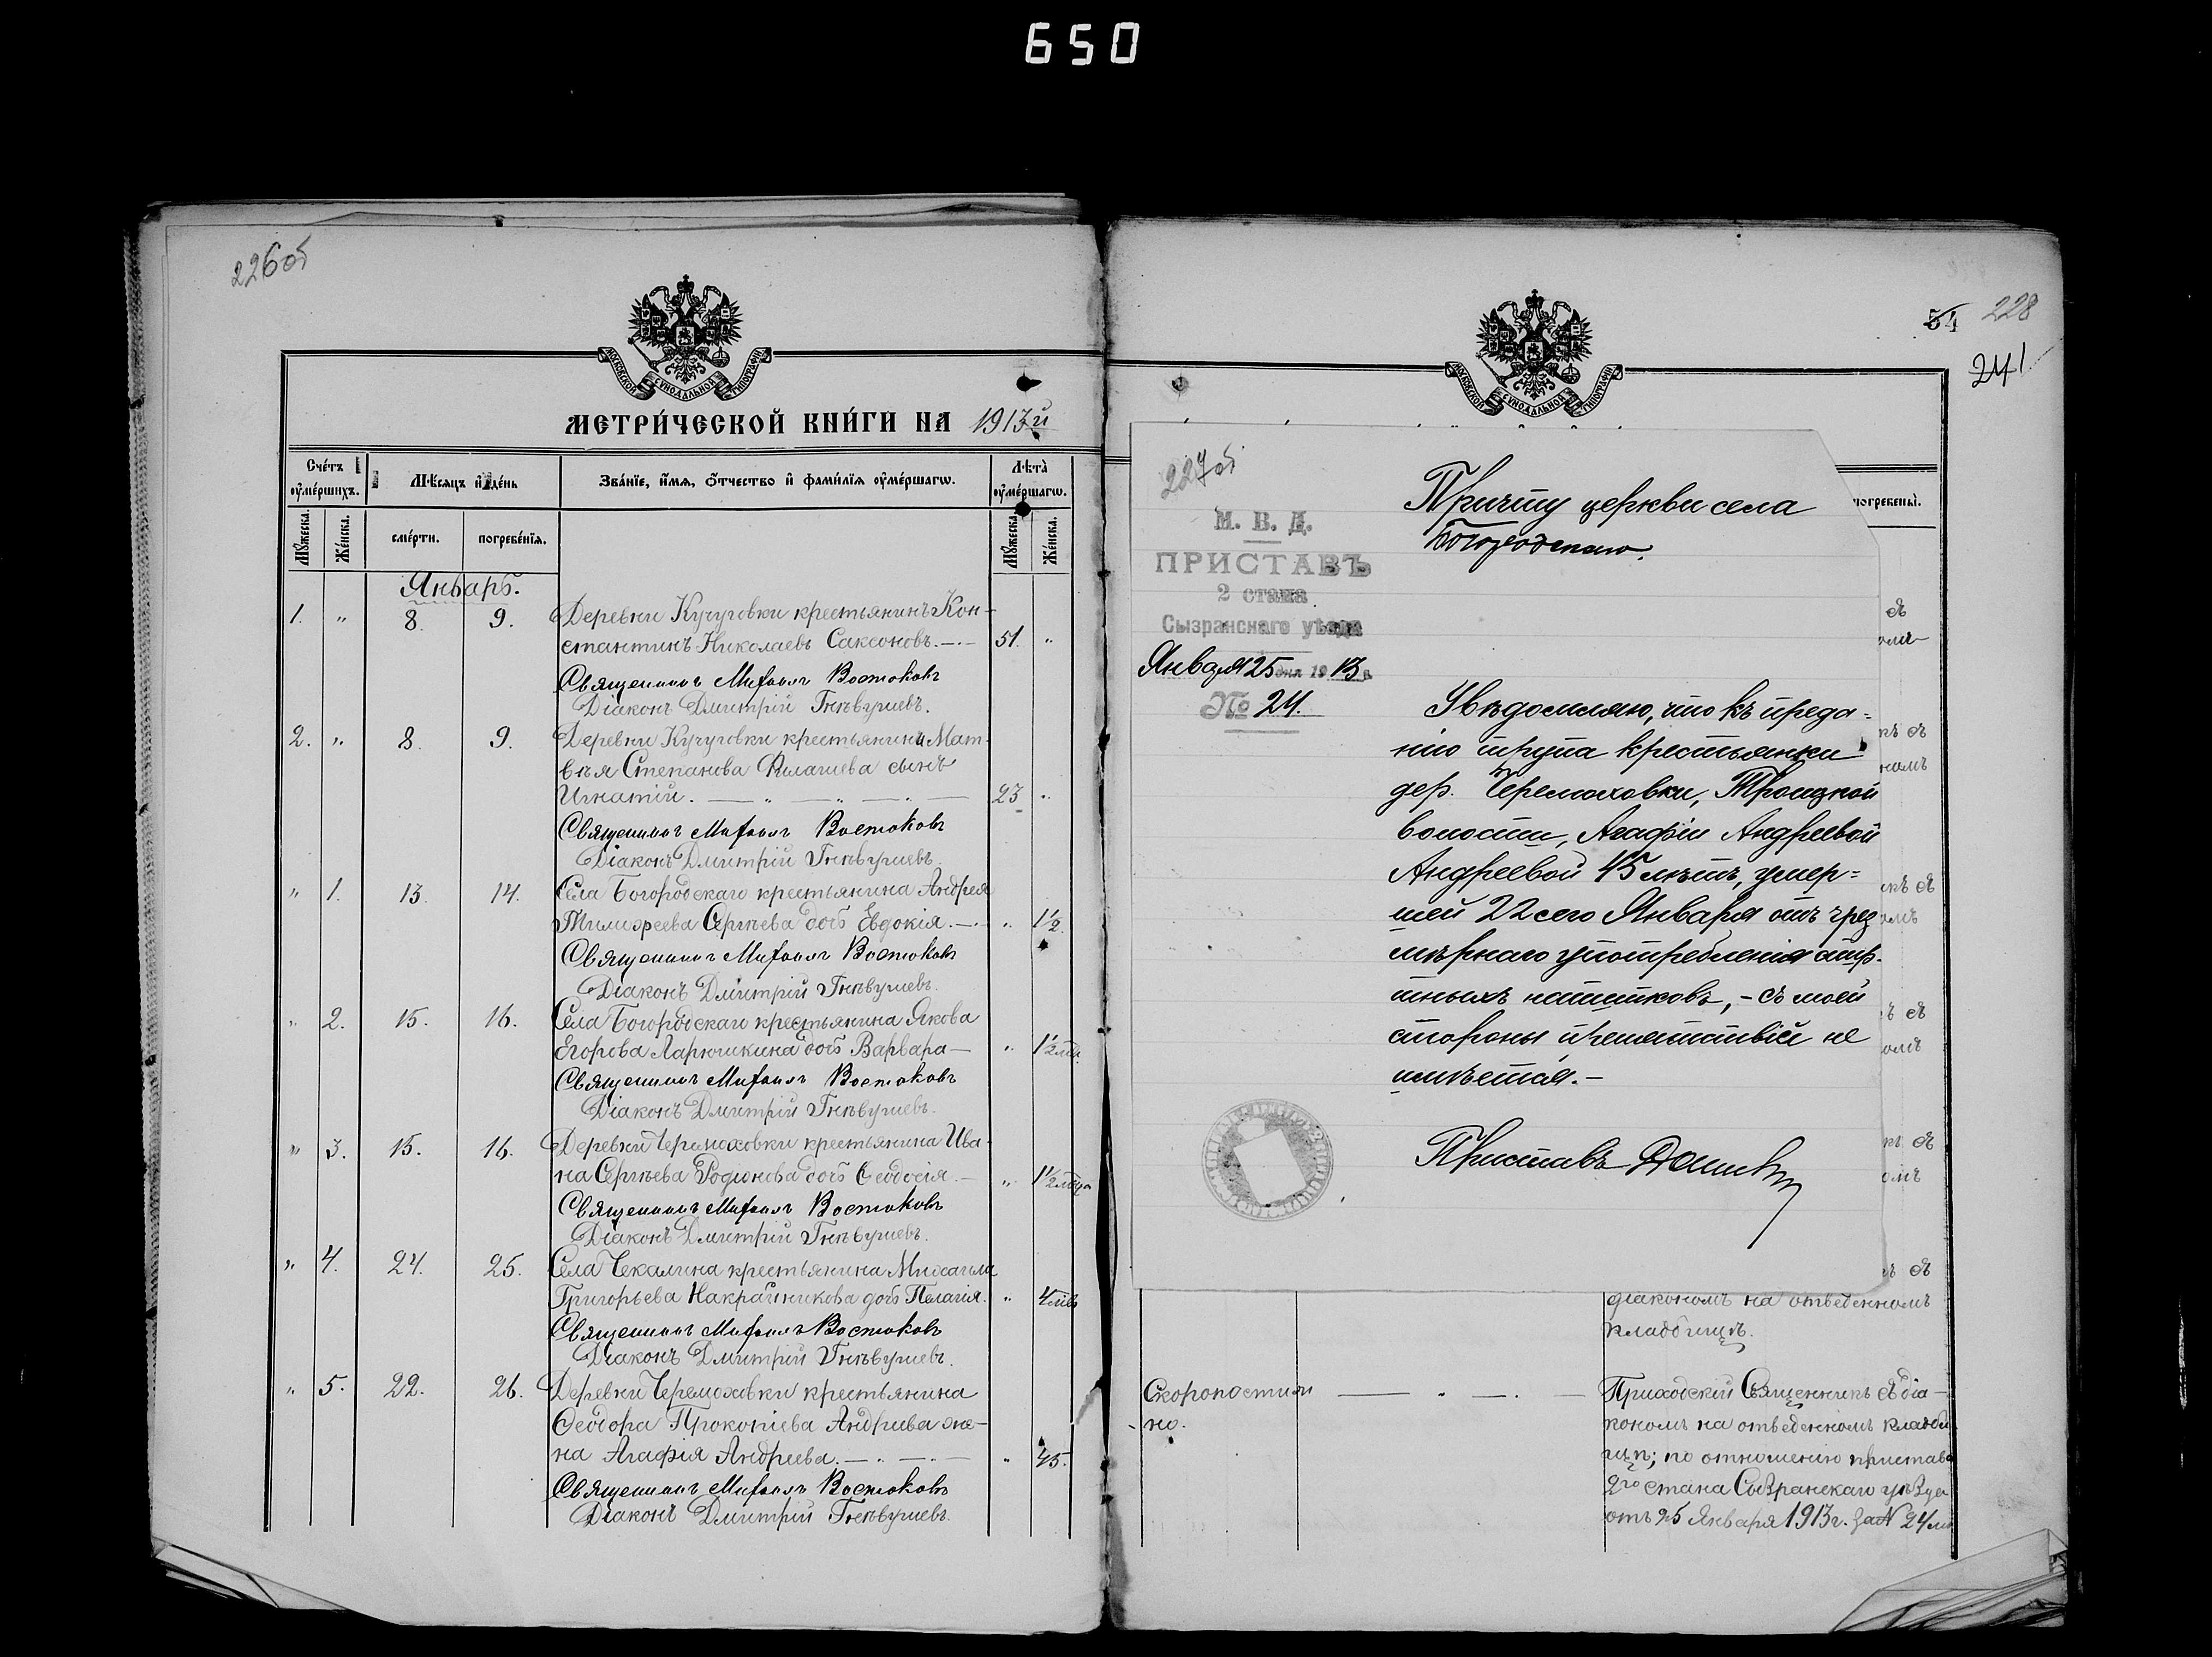 650
226об
МОСКОВСКОЙ СѴНОДАЛЬНОЙ ТИПОГРАФІИ
МЕТРИ́ЧЕСКОЙ КНИ́ГИ НА 1913й
Сче́тъ оу҆ме́ршихъ.
Мѣ́сяцъ и҆ де́нь
Зва́нїе, и҆́мѧ, ѻ҆́тчество и҆ фами́лїѧ оу҆ме́ршагѡ.
Лѣ́та оу҆ме́ршагѡ.
Мꙋ́жеска.
Же́нска.
сме́рти.
погребе́нїѧ.
Мꙋ́жеска.
Же́нска.
Январь.
1. " 8. 9. Деревни Кучуговки крестьянинъ Кон-
стантинъ Николаевъ Саксоновъ. 51. "
Священникъ Михаилъ Востоковъ
Діаконъ Дмитрій Гнѣвушевъ.
2. " 8. 9. Деревни Кучуговки крестьянина Мат-
вѣя Степанова сынъ
Игнатій. 23 "
Священникъ Михаилъ Востоковъ
Діаконъ Дмитрій Гнѣвушевъ.
" 1. 13. 14. Села Богородскаго крестьянина Андрея
Тимофеева Сергѣева дочь Евдокія. " 1½
Священникъ Михаилъ Востоковъ
Діаконъ Дмитрій Гнѣвушевъ.
" 2. 15. 16. Села Богородскаго крестьянина Якова
Егорова Ларюшкина дочь Варвара " 1½
Священникъ Михаилъ Востоковъ
Діаконъ Дмитрій Гнѣвушевъ.
" 3. 15. 16. Деревни Черемоховки крестьянина Ива-
на Сергѣева Родионова дочь Ѳеодосія. " 1½
Священникъ Михаилъ Востоковъ
Діаконъ Дмитрій Гнѣвушевъ.
" 4. 24. 25. Села Чекалина крестьянина Михаила
Григорьева Накрайникова дочь Пелагія. " 4
Священникъ Михаилъ Востоковъ
Діаконъ Дмитрій Гнѣвушевъ.
" 5. 22. 26. Деревни Черемоховки крестьянина
Ѳеодора Прокопіева Андреева же-
на Агафія Андреева. " 45.
Священникъ Михаилъ Востоковъ
Діаконъ Дмитрій Гнѣвушевъ.
54 228
241
МОСКОВСКОЙ СѴНОДАЛЬНОЙ ТИПОГРАФІИ
погребены̀.
227об
М. В. Д.
ПРИСТАВЪ
2 стана
Сызранскаго уѣзда
Января 25 дня 1913 г.
№ 24.
Причту церкви села
Богородскаго.
Увѣдомляю, что къ преда=
нію трупа крестьянки
дер. Черемоховки, Троицкой
волости, Агафіи Андреевой
Андреевой 45 лѣтъ, умер=
шей 22 сего Января отъ чрез
мѣрнаго употребленія спир-
тныхъ напитковъ, - съ моей
стороны препятствій не
имѣется.-
Приставъ
діакономъ на отведенномъ
кладбищѣ.
Скоропостиж
но.
Приходскій Священникъ съ діа-
кономъ на отведенномъ кладби
щѣ; по отношенію пристава
2го стана Сызранскаго уѣзда
отъ 25 Января 1913 г. за № 24